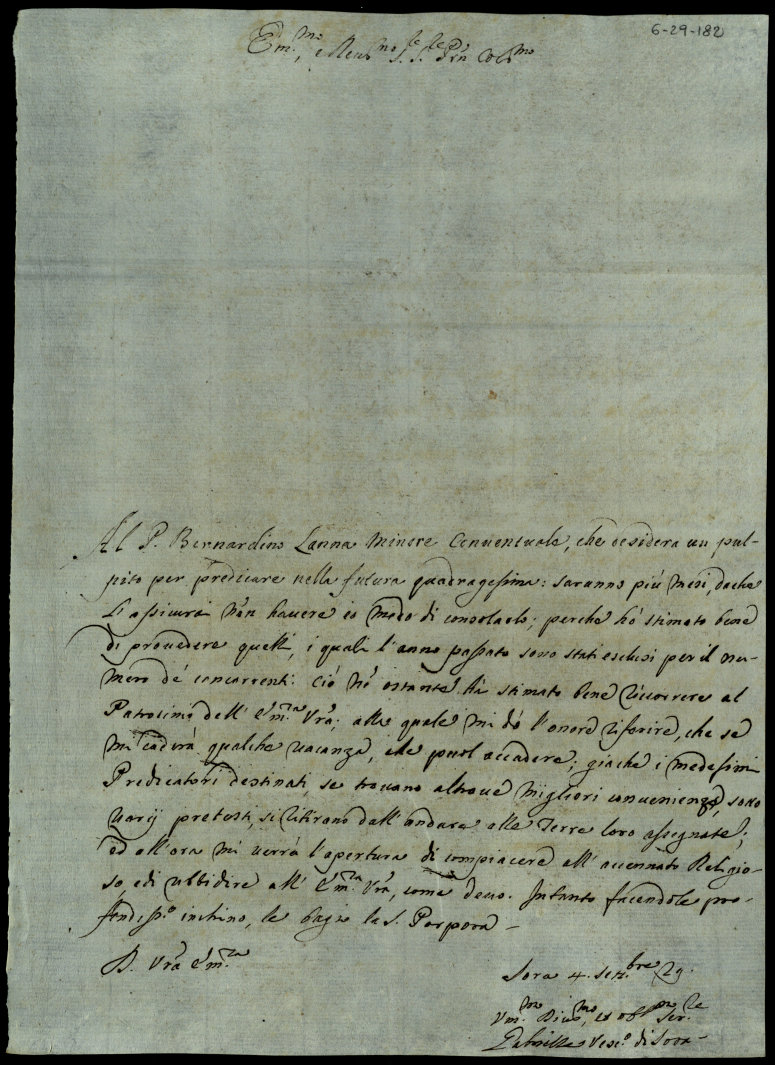 6-29-182
Em.mo, e Reu.mo S.re S.re P.rn Col.mo
Al P. Bernardino Lanna Minore Conuentuale, che desidera un pul-
pito per predicare nella futura quadragesima: saranno più mesi, dache
li assicurai non hauere io modo di consolarlo; perche hò stimato bene
di prouedere quelli, i quali l'anno passato sono stati esclusi per il nu-
mero de' concorrenti. Ciò nō ostante hà stimato bene ricorrere al
Patrocinio dell' E.ma Vrã; alla quale mi dò l'onore riferire, che se
mi caderà qualche uacanza, che puol accadere; giache i medesimi
Predicatori destinati, se trouano altroue migliori conuenienze, sotto
uarij pretesti, si ritirano dall'andare alle Terre loro assegnate;
ed all'ora mi uerrà l'apertura di compiacere all' accennato Religio-
so, e di ubbidire all' E.ma Vrã, come deuo. Intanto facendole pro-
fondiss.o inchino, le bagio la S. Porpora -
D. Vrã E.ma
Sora 4. Sett.bre 29.
Vm.mo Diu.mo, ed obl.mo Ser.re
Gabrielle Vesc.o di Sora -